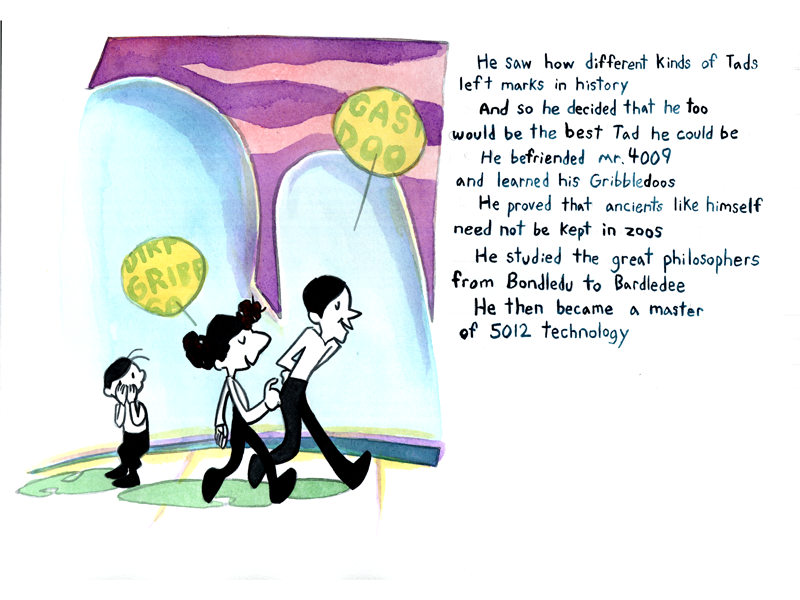 GAST
DOO
He saw how different kinds of Tads
left marks in history
And so he decided that he too
would be the best Tad he could be
He befriended mr. 4009
and learned his Gribbledoos
He proved that ancients like himself
need not be kept in zoos
He studied the great philosophers
from Bondledu to Bardledee
He then became a master
of 5012 technology